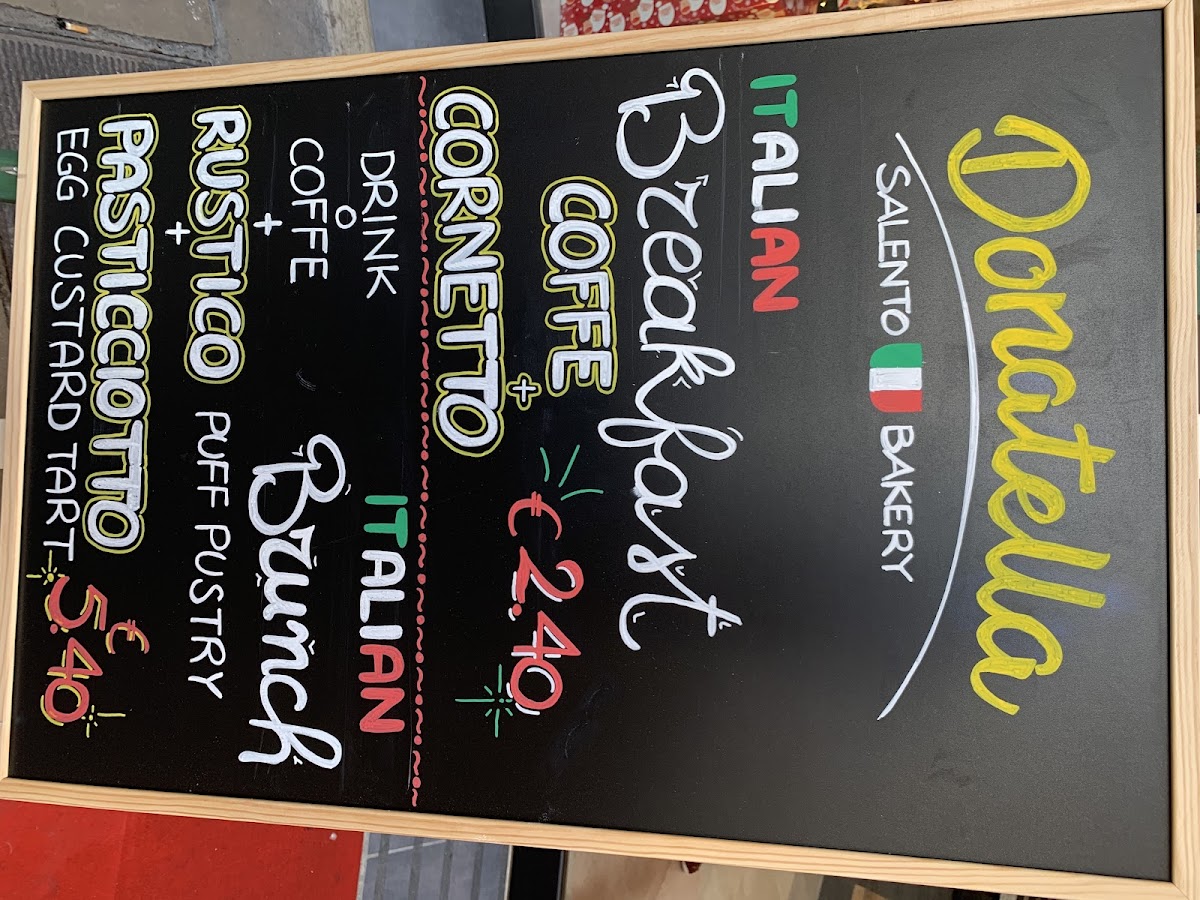 Donatella
SALENTO BAKERY
ITALIAN
Breakfast
COFFE
+
CORNETTO
€ 2.40
ITALIAN
Brunch
DRINK
O
COFFE
+
RUSTICO PUFF PUSTRY
+
PASTICCIOTTO
EGG CUSTARD TART
€
5.40